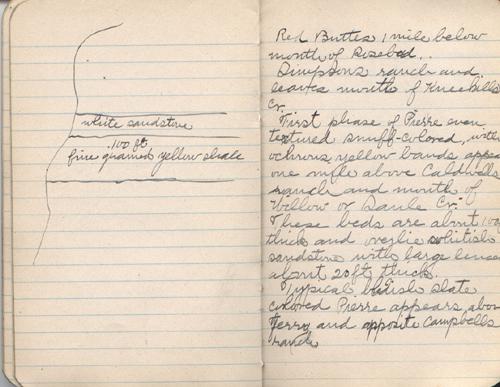 white sandstone
.100 ft
fine grained yellow shale
Red Buttes 1 mile below
mouth of Rosebud.
Simpsons ranch and
leaves mouth of Kneehills
Cr.
First phase of Pierre even
textured snuff-colored, with
ochrous yellow bands appea
one mile above Caldwells
ranch and mouth of
Willow or Cr.
These beds are about 100
thick and overlie whitish
sandstone with large
about 20 ft thick.
Typical bluish slate
colored Pierre appears, abov
Ferry and opposite Campbells
ranch